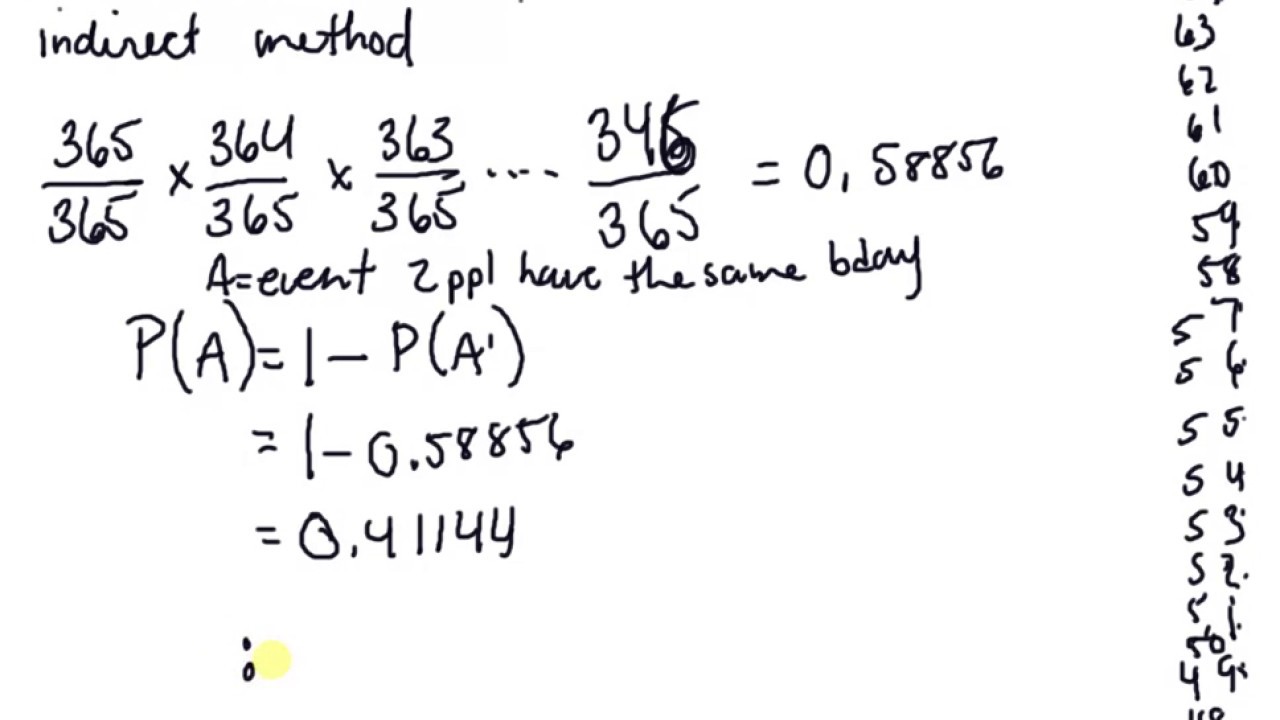 indirect method
365/365 × 364/365 × 363/365 ···· 346/365 = 0.58856
A=event 2 ppl have the same bday
P(A)=1-P(A')
=1-0.58856
=0.41144
:
63
62
61
60
59
58
57
56
55
54
53
52
51
50
49
48